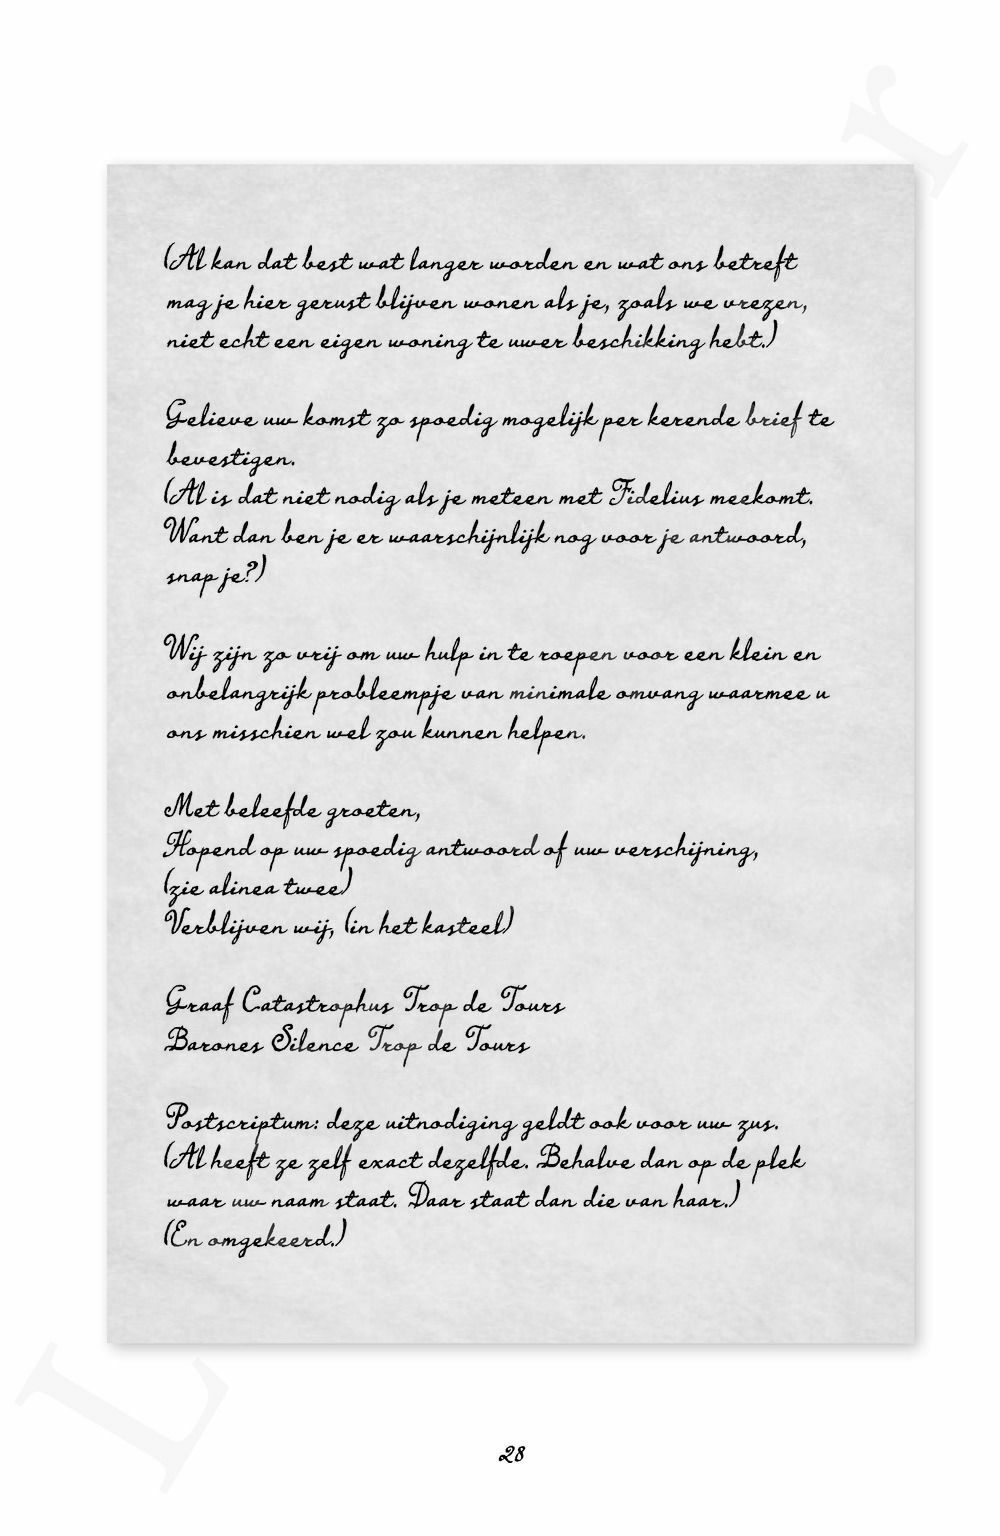 (Al kan dat best wat langer worden en wat ons betreft
mag je hier gerust blijven wonen als je, zoals we vrezen,
niet echt een eigen woning te uwer beschikking hebt.)
Gelieve uw komst zo spoedig mogelijk per kerende brief te
bevestigen.
(Al is dat niet nodig als je meteen met Fidelius meekomt.
Want dan ben je er waarschijnlijk nog voor je antwoord,
snap je?)
Wij zijn zo vrij om uw hulp in te roepen voor een klein en
onbelangrijk probleempje van minimale omvang waarmee u
ons misschien wel zou kunnen helpen.
Met beleefde groeten,
Hopend op uw spoedig antwoord of uw verschijning,
(zie alinea twee)
Verblijven wij, (in het kasteel)
Graaf Catastrophus Trop de Tours
Barones Silence Trop de Tours
Postscriptum: deze uitnodiging geldt ook voor uw zus.
(Al heeft ze zelf exact dezelfde. Behalve dan op de plek
waar uw naam staat. Daar staat dan die van haar.)
(En omgekeerd.)
28